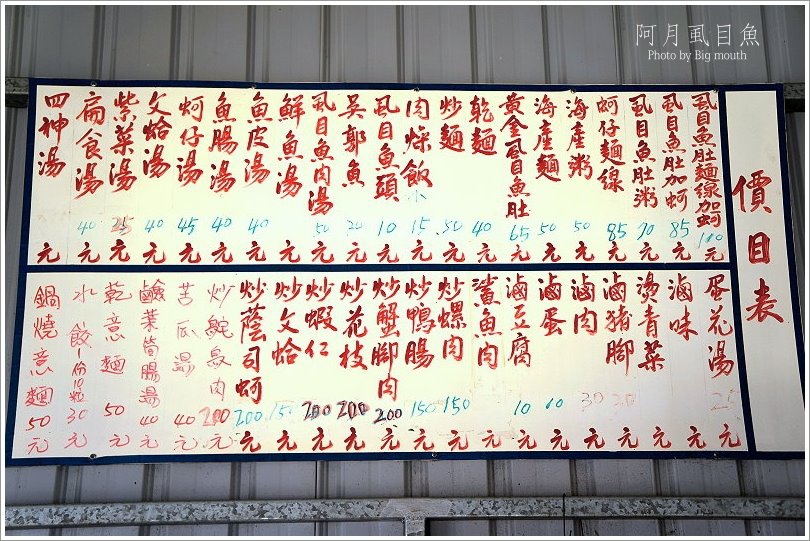 阿月虱目魚
Photo by Big mouth
價目表
虱目魚肚麵線加蚵 100元
虱目魚肚加蚵 85元
虱目魚肚粥 70元
蚵仔麵線 85元
海產粥 50元
海產麵 50元
黃金虱目魚肚 65元
乾麵 40元
炒麵 50元
肉燥飯 小 15元
虱目魚頭 10元
吳郭魚 20元
虱目魚肉湯 50元
鮮魚湯 元
魚皮湯 40元
魚腸湯 40元
蚵仔湯 45元
文蛤湯 40元
紫菜湯 25元
扁食湯 40元
四神湯 元
蛋花湯 元
滷味 元
燙青菜 元
滷豬腳 30元
滷肉 30元
滷蛋 10元
滷豆腐 10元
鯊魚肉 元
炒螺肉 150元
炒鴨腸 150元
炒蟹腳肉 200元
炒花枝 200元
炒蝦仁 200元
炒文蛤 150元
炒蔭司蚵 200元
炒魷魚肉 200元
苦瓜湯 40元
鹹菜鴨腸湯 40元
乾意麵 50元
水餃1份10粒 30元
鍋燒意麵 50元